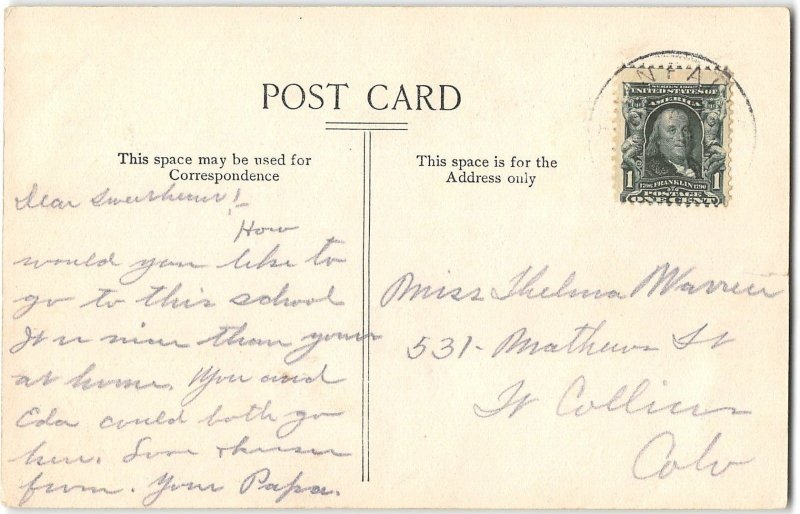 NFA
POST CARD
SERIES 1902
UNITED STATES OF
AMERICA
1 1706 FRANKLIN 1790 1
POSTAGE
ONE CENT
This space may be used for
Correspondence
This space is for the
Address only
Dear Sweetheart!
How
would you like to
go to this school
It is nicer than yours
at home. You and
Eda could both go
here. Love & kisses
from. Your Papa.
Miss Thelma Warren
531- Mathews St
Ft Collins
Colo